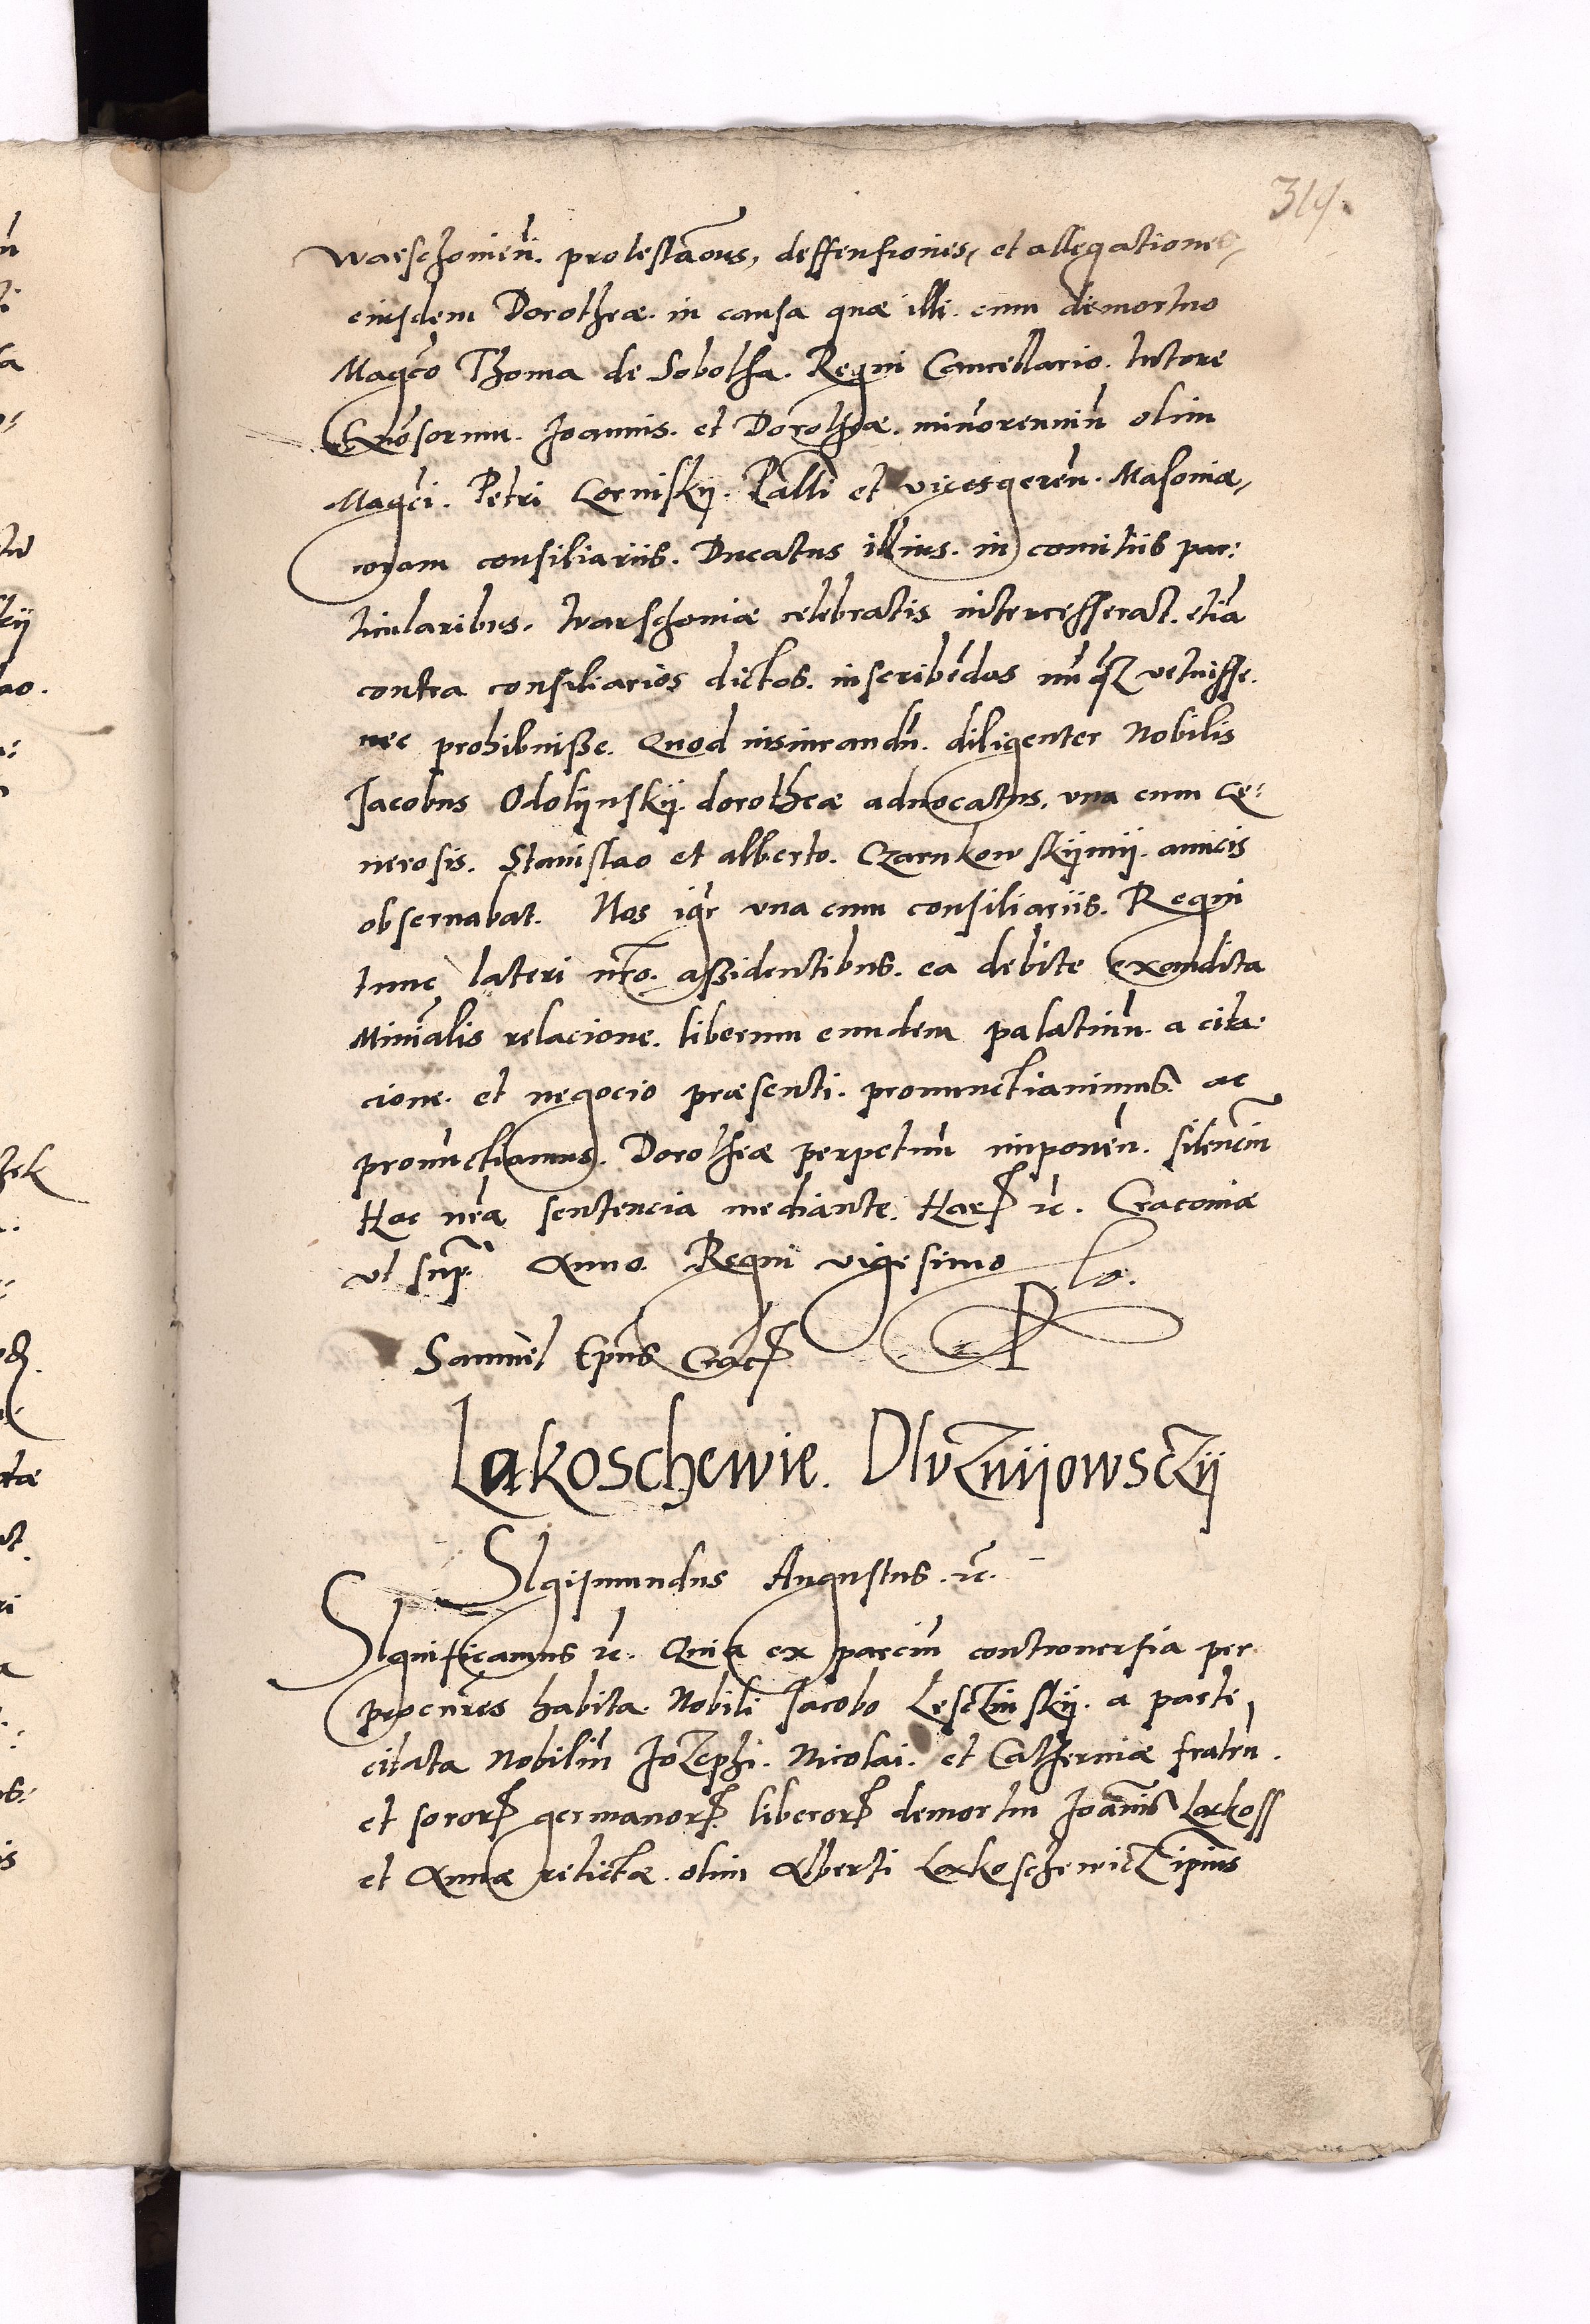 314.
Warschouien̄. protestāōns, deffensiones, et allegationes,
eiusdem Dorotheæ. in causa quæ illi. cum demortuo
Magco Thoma de Sobotha. Regni Cancellario. tutore
Gn̄osorum. Joannis. et Dorotheæ. minorenniū olim
Magci. Petri Gornisky. Pallī et vicesgeren̄. Masoniæ,
coram consiliariis. Ducatus illius. in comitiis par:
ticularibus. Warschoniæ celebratis intercesserat. etiā
contra consiliarios dictos. inscribēdas nūqz vetuisse.
nec prohibuisse. Quod iusiurandū. diligenter Nobilis
Jacobus Odolijnskij. dorotheæ aduocatus. vna cum Ge:
nerosis. Stanislao et alberto. Czarnkowskijmij. amicis
obseruabat. Nos igr vna cum consiliariis. Regni
tunc lateri nr̄o. assidentibus. ea debite exaudita
Miniālis relacione. liberum eundem palatinū. a cita:
cione. et negocio præsenti. pronunctiauimus. ac
pronūctiamus. Dorotheæ perpetuū imponen̄. silenciū
Hac nr̄a sentencia mediante. Har̄ꝝ rc̄. Cracouiæ
vt supr̄. Anno. Regni vigesimo
Samuel Ep̄us Crac̄ꝝ
Lakoschewie. Dluznijowsczij
Sigismundus Augustus. rc̄.
Significamus rc̄. Quia ex parciū controuersia per
procūres habita. Nobili Jacobo Lesczinskij. a parte
citata Nobiliū Jozephi. Nicolai. et Catherinæ fratrū.
et sororꝝ germanorꝝ. liberorꝝ demortui Joānis Lackoss
et Annæ relictæ. olim Alberti Lakoschewicz ipsius